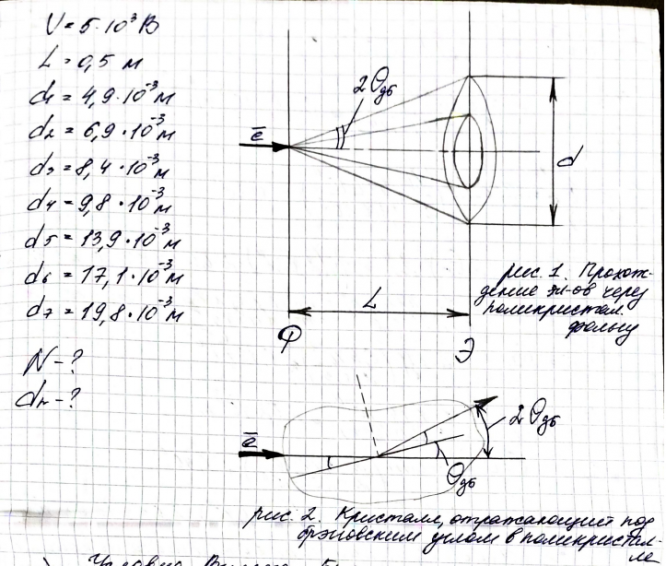 U = 5·10³ В
L = 0,5 м
d₁ = 4,9·10⁻³ м
d₂ = 6,9·10⁻³ м
d₃ = 8,4·10⁻³ м
d₄ = 9,8·10⁻³ м
d₅ = 13,9·10⁻³ м
d₆ = 17,1·10⁻³ м
d₇ = 19,8·10⁻³ м
N - ?
dₙ - ?
2θдб
e̅
d
L
Ф
Э
рис. 1. Прохож-
дение эл-ов через
поликристал.
фольгу
e̅
2θдб
θдб
рис. 2. Кристалл, отражающий под
брэговским углом в поликристал-
ле